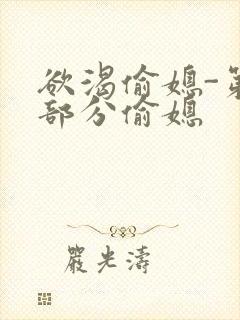 欲渴偷媳-第
部分偷媳
嚴光濤